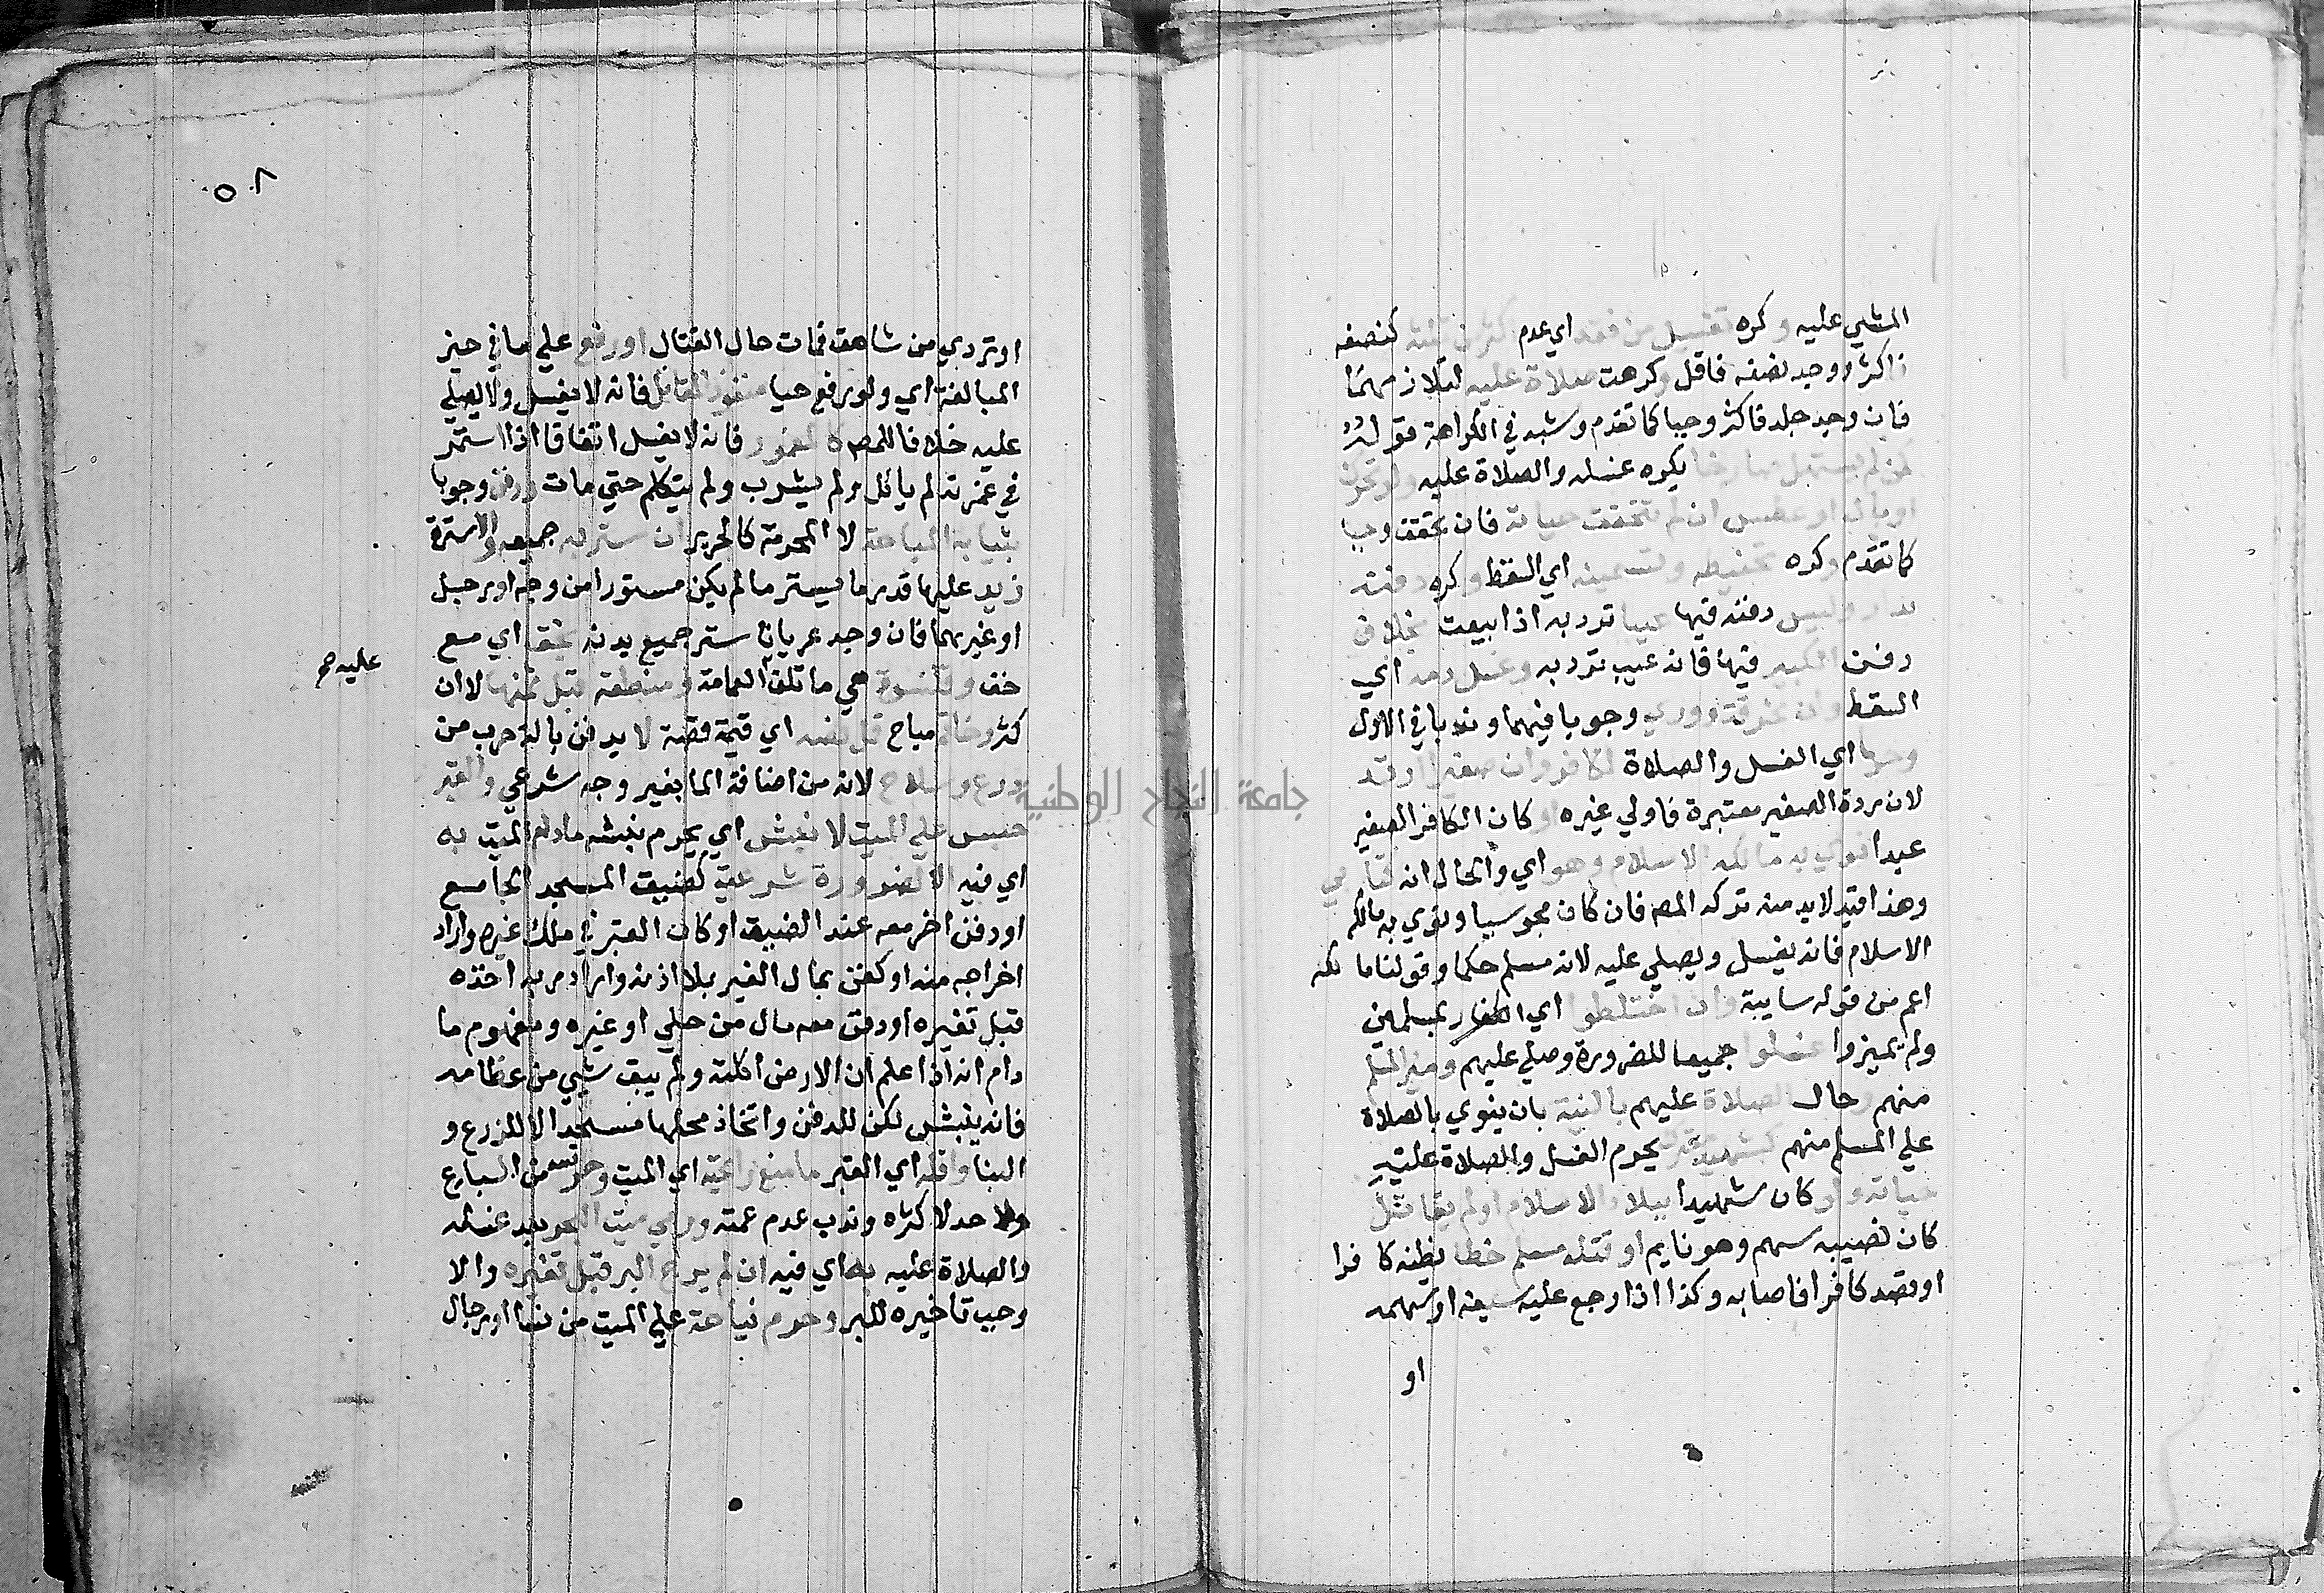 المشي عليه وكره تغسيل من فقد اي عدم اكثر من ثلثه كنصفه
فاكثر ووجد نصفه فاقل وكرهت صلاة عليه لتلازمهما
فان وجد جله فاكثر وجبا كما تقدم وشبه في الكراهة قوله
كمن لم يستهل صارخا يكره غسله والصلاة عليه ولو تحرك
او بال او عطس ان لم تتحقق حياته فان تحققت وجبا
كما تقدم وكره تحنيطه وتسميته اي السقط وكره دفنه
بدار وليس دفنه فيها عيبا ترد به اذا بيعت بخلاف
دفن الكبير فيها فانه عيب ترد به وغسل دمه اي
السقط ولف بخرقة ووري وجوبا فيهما وندبا في الاول
وحرما اي الغسل والصلاة لكافر وان صغيرا ارتد
لان ردة الصغير معتبرة فاولي غيره او كان الكافر الصغير
عبدا نوي به مالكه الاسلام وهو اي والحال انه كتابي
وهذا قيد لابد منه تركه المص فان كان مجوسيا ونوي به مالكه
الاسلام فانه يغسل ويصلي عليه لانه مسلم حكما وقولنا مالكه
اعم من قوله سابيه وان اختلطوا اي الكفار بمسلمين
ولم يميزوا غسلوا جميعا للضرورة وصلي عليهم وميز المسلم
منهم حال الصلاة عليهم بالنية بان ينوي بالصلاة
علي المسلم منهم كشهيد معترك يحرم الغسل والصلاة عليه
حياته وان كان شهيدا ببلاد الاسلام او لم يقاتل
كان نصيبه سهم وهو نايم او قتله مسلم خطا يظنه كافرا
او يقصد كافرا فاصابه وكذا اذا رجع عليه سيفه او سهمه
او
٥٨
او تردي من شاهق فمات حال القتال او رفع علي ما في حيز
المبالغة اي ولو رفع حيا منفوذ المقاتل فانه لا يغسل ولا يصلي
عليه خلافا للمص كالمغمور فانه لا يغسل اتفاقا اذا استمر
في غمرته لم ياكل ولم يشرب ولم يتكلم حتي مات ودفن وجوبا
بثيابه المباحة لا المحرمة كالحرير ان سترته جميعه والا سترته
زيد عليها قدر ما يستر ما لم يكن مستورا من وجه او رجل
او غيرهما فان وجد عريانا ستر جميع بدنه بخف اي مع
خف وقلنسوة هي ما تلف العمامة ومنطقة قل ثمنها لا ان
عليه صح
كثر وخاتم مباح قل فصه اي قيمة فصه لا يدفن بالة حرب من
درع وسلاح لانه من اضافة المال بغير وجه شرعي والقبر
حبس علي الميت لا ينبش اي يحرم نبشه ما دام الميت به
اي فيه الا لضرورة شرعية كضيق المسجد الجامع
او دفن اخر معه عند الضيق او كان القبر في ملك غيره واراد
اخراجه منه او كفن بمال الغير بلا اذنه واراد ربه اخذه
قبل تغيره او دفن معه مال من حلي او غيره ومفهوم ما
دام انه اذا علم ان الارض اكلته ولم يبق شيي من عظامه
فانه ينبش لكن للدفن واتخاذ محلها مسجدا لا للزرع و
البنا واقله اي القبر ما منع رايحته اي الميت وحرسه من السباع
ولا حد لاكثره وندب عدم عمقه ورمي ميت البحر بعد غسله
والصلاة عليه به اي فيه ان لم يرج البر قبل تغيره والا
وجب تاخيره للبر وحرم نياحة علي الميت من نسا او رجال
جامعة النجاح الوطنية